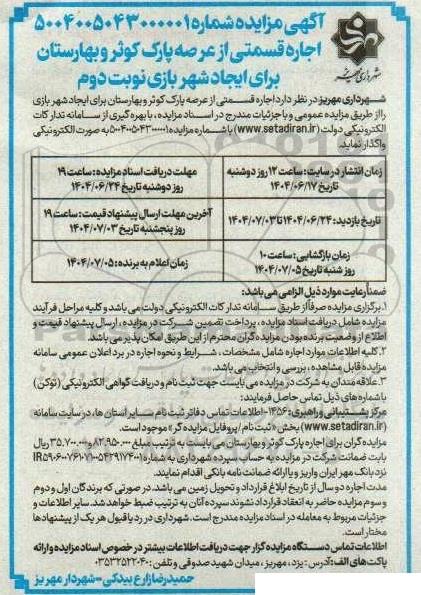 آگهی مزایده شماره ۵۰۰۴۰۰۵۰۴۳۰۰۰۰۰۱
اجاره قسمتی از عرصه پارک کوثر و بهارستان
برای ایجاد شهر بازی نوبت دوم
شهرداری مهریز
شهرداری مهریز در نظر دارد اجاره قسمتی از عرصه پارک کوثر و بهارستان برای ایجاد شهر بازی
را از طریق مزایده عمومی و با جزئیات مندرج در اسناد مزایده، با بهره گیری از سامانه تدارکات
الکترونیکی دولت (www.setadiran.ir) با شماره مزایده ۵۰۰۴۰۰۵۰۴۳۰۰۰۰۰۱ به صورت الکترونیکی
واگذار نماید.
زمان انتشار در سایت: ساعت ۱۲ روز دوشنبه
تاریخ ۱۴۰۴/۰۶/۱۷
مهلت دریافت اسناد مزایده: ساعت ۱۹
روز دوشنبه تاریخ ۱۴۰۴/۰۶/۲۴
تاریخ بازدید: ۱۴۰۴/۰۶/۲۴ تا ۱۴۰۴/۰۷/۰۳
آخرین مهلت ارسال پیشنهاد قیمت: ساعت ۱۹
روز پنجشنبه تاریخ ۱۴۰۴/۰۷/۰۳
زمان بازگشایی: ساعت ۱۰
روز شنبه تاریخ ۱۴۰۴/۰۷/۰۵
زمان اعلام به برنده: ۱۴۰۴/۰۷/۰۵
ضمناً رعایت موارد ذیل الزامی می باشد:
۱. برگزاری مزایده صرفاً از طریق سامانه تدارکات الکترونیکی دولت می باشد و کلیه مراحل فرآیند
مزایده شامل دریافت اسناد مزایده، پرداخت تضمین شرکت در مزایده، ارسال پیشنهاد قیمت و
اطلاع از وضعیت برنده بودن مزایده گران محترم از این طریق امکان پذیر می باشد.
۲. کلیه اطلاعات موارد اجاره شامل مشخصات، شرایط و نحوه اجاره در برد اعلان عمومی سامانه
مزایده قابل مشاهده، بررسی و انتخاب می باشد.
۳. علاقه مندان به شرکت در مزایده می بایست جهت ثبت نام و دریافت گواهی الکترونیکی (توکن)
با شماره های ذیل تماس حاصل فرمایند:
مرکز پشتیبانی و راهبری: ۱۴۵۶- اطلاعات تماس دفاتر ثبت نام سایر استان ها، در سایت سامانه
(www.setadiran.ir) بخش «ثبت نام/ پروفایل مزایده گر» موجود است.
مزایده گران برای اجاره پارک کوثر و بهارستان می بایست به ترتیب مبلغ ۸۲,۹۵۰,۰۰۰ و ۳۵,۷۰۰,۰۰۰ ریال
بابت ضمانت شرکت در مزایده به حساب سپرده شهرداری به شماره
نزد بانک مهر ایران واریز و یا ارائه ضمانت نامه بانکی اقدام نمایند.
مدت اجاره دو سال از تاریخ ابلاغ قرارداد و تحویل زمین می باشد. در صورتی که برندگان اول و دوم
و سوم مزایده حاضر به انعقاد قرارداد نشوند سپرده آنان به ترتیب ضبط خواهد شد. سایر اطلاعات و
جزئیات مربوط به معامله در اسناد مزایده مندرج است. شهرداری در رد یا قبول هر یک از پیشنهادها
مختار است.
اطلاعات تماس دستگاه مزایده گزار جهت دریافت اطلاعات بیشتر در خصوص اسناد مزایده و ارائه
پاکت های الف: آدرس: یزد، مهریز، میدان شهید صدوقی و تلفن: ۰۳۵۳۲۵۲۲۰۴۰
حمیدرضا زارع بیدکی - شهردار مهریز